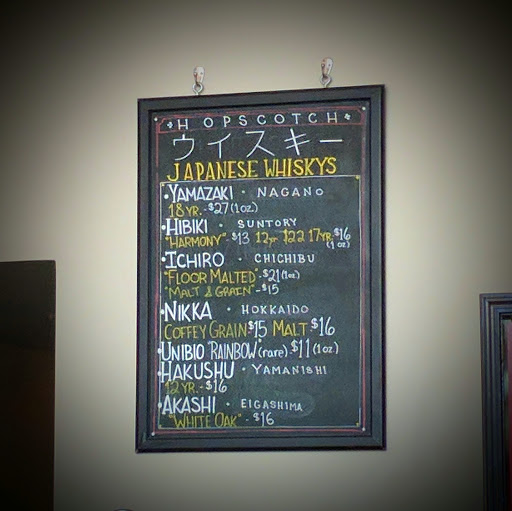 HOPSCOTCH
ウイスキー
JAPANESE WHISKYS
·YAMAZAKI · NAGANO
18YR.-$27(1oz.)
·HIBIKI · SUNTORY
"HARMONY"-$13 12yr $22 17YR-$16
(1oz)
·ICHIRO · CHICHIBU
"FLOOR MALTED"-$21(1oz)
"MALT & GRAIN"-$15
·NIKKA · HOKKAIDO
COFFEY GRAIN $15 MALT-$16
·UNIBIO "RAINBOW"(rare)-$11(1oz)
·HAKUSHU · YAMANISHI
12YR.-$16
·AKASHI · EIGASHIMA
"WHITE OAK" - $16